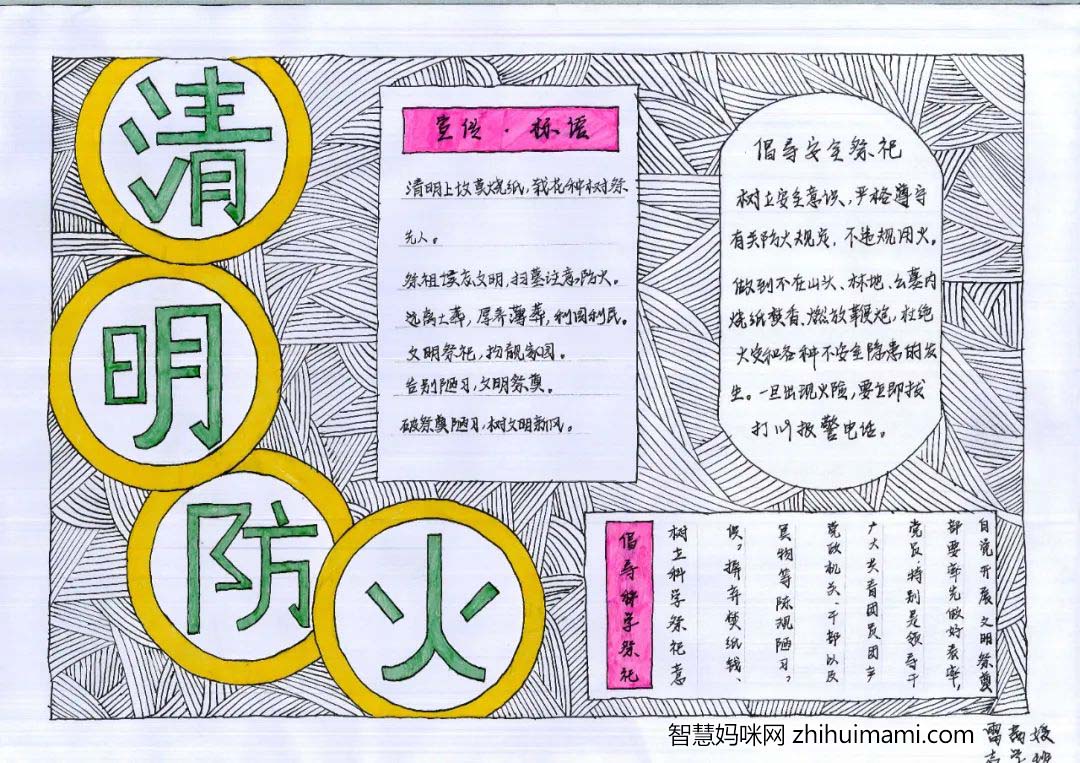 清
明
防
火
宣传·标语
清明上坟莫烧纸，栽花种树祭
先人。
祭祖文明，扫墓注意防火。
远离土葬，厚养薄葬，利国利民。
文明祭祀，扮靓家园。
告别陋习，文明祭奠。
破祭奠陋习，树文明新风。
倡导安全祭祀
树立安全意识，严格遵守
有关防火规定，不违规用火。
做到不在山头、林地、公墓内
烧纸焚香、燃放鞭炮，杜绝
火灾和各种不安全隐患的发
生。一旦出现火险，要立即拨
打119报警电话。
倡导科学祭祀
树立科学祭祀意
，摒弃焚纸钱、
冥物等陈规陋习。
党政机关、干部以及
广大共青团员团干
党员特别是领导干
部要率先做好表率，
自觉开展文明祭奠
智慧妈咪网 zhihuimami.com